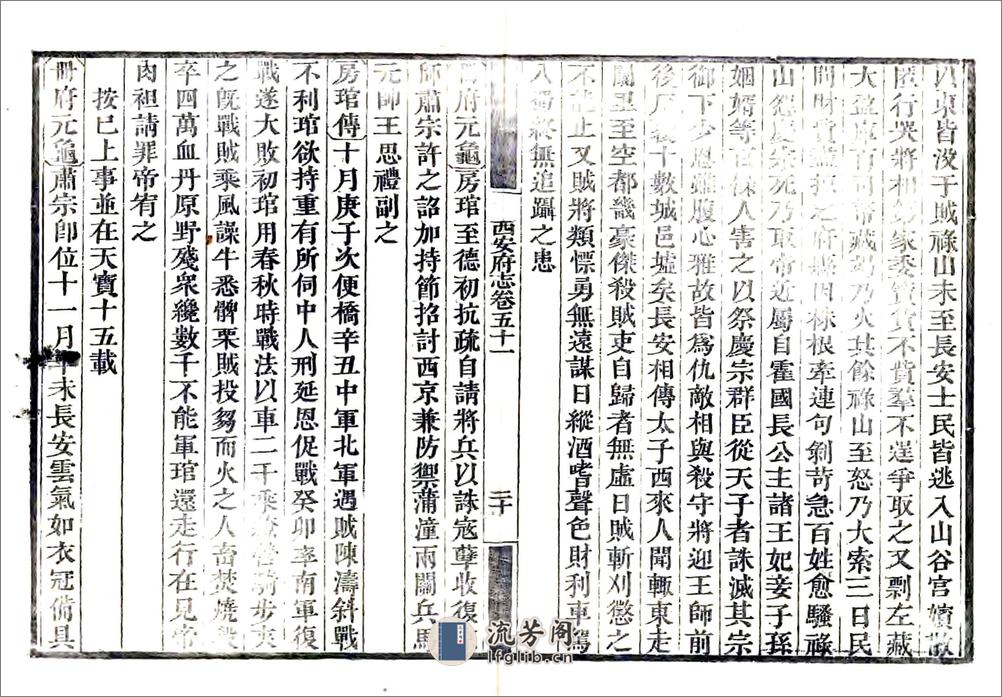 東皆沒于賊祿山未至長安士民皆逃入山谷宮嬪散
匿行哭將相家委寶貨不貲羣不逞爭取之又剽左藏
大盈庫百司帑藏竭乃火其餘祿山至怒乃大索三日民
間財貲盡掠之府縣因株根牽連句剝苛急百姓愈騷祿
山怨慶宗死乃取帝近屬自霍國長公主諸王妃妾子孫
姻婿等百餘人害之以祭慶宗群臣從天子者誅滅其宗
御下少恩雖腹心雅故皆爲仇敵相與殺守將迎王師前
後反復十數城邑墟矣長安相傳太子西來人聞輒東走
闤里至空都畿豪傑殺賊吏自歸者無虛日賊斬刈懲之
不能止又賊將類慓勇無遠謀日縱酒嗜聲色財利車駕
入蜀終無追躡之患
西安府志卷五十一
二十
冊府元龜房琯至德初抗疏自請將兵以誅寇孽收復
師肅宗許之詔加持節招討西京兼防禦蒲潼兩關兵馬
元帥王思禮副之
房琯傳十月庚子次便橋辛丑中軍北軍遇賊陳濤斜戰
不利琯欲持重有所伺中人刑延恩促戰癸卯率南軍復
戰遂大敗初琯用春秋時戰法以車二千乘營騎步夾
之旣戰賊乘風譟牛悉髀栗賊投芻而火之人畜焚燒
卒四萬血丹原野殘衆纔數千不能軍琯還走行在見帝
肉袒請罪帝宥之
按已上事並在天寶十五載
冊府元龜肅宗卽位十一月辛未長安雲氣如衣冠備具
流芳阁
lfglib.cn